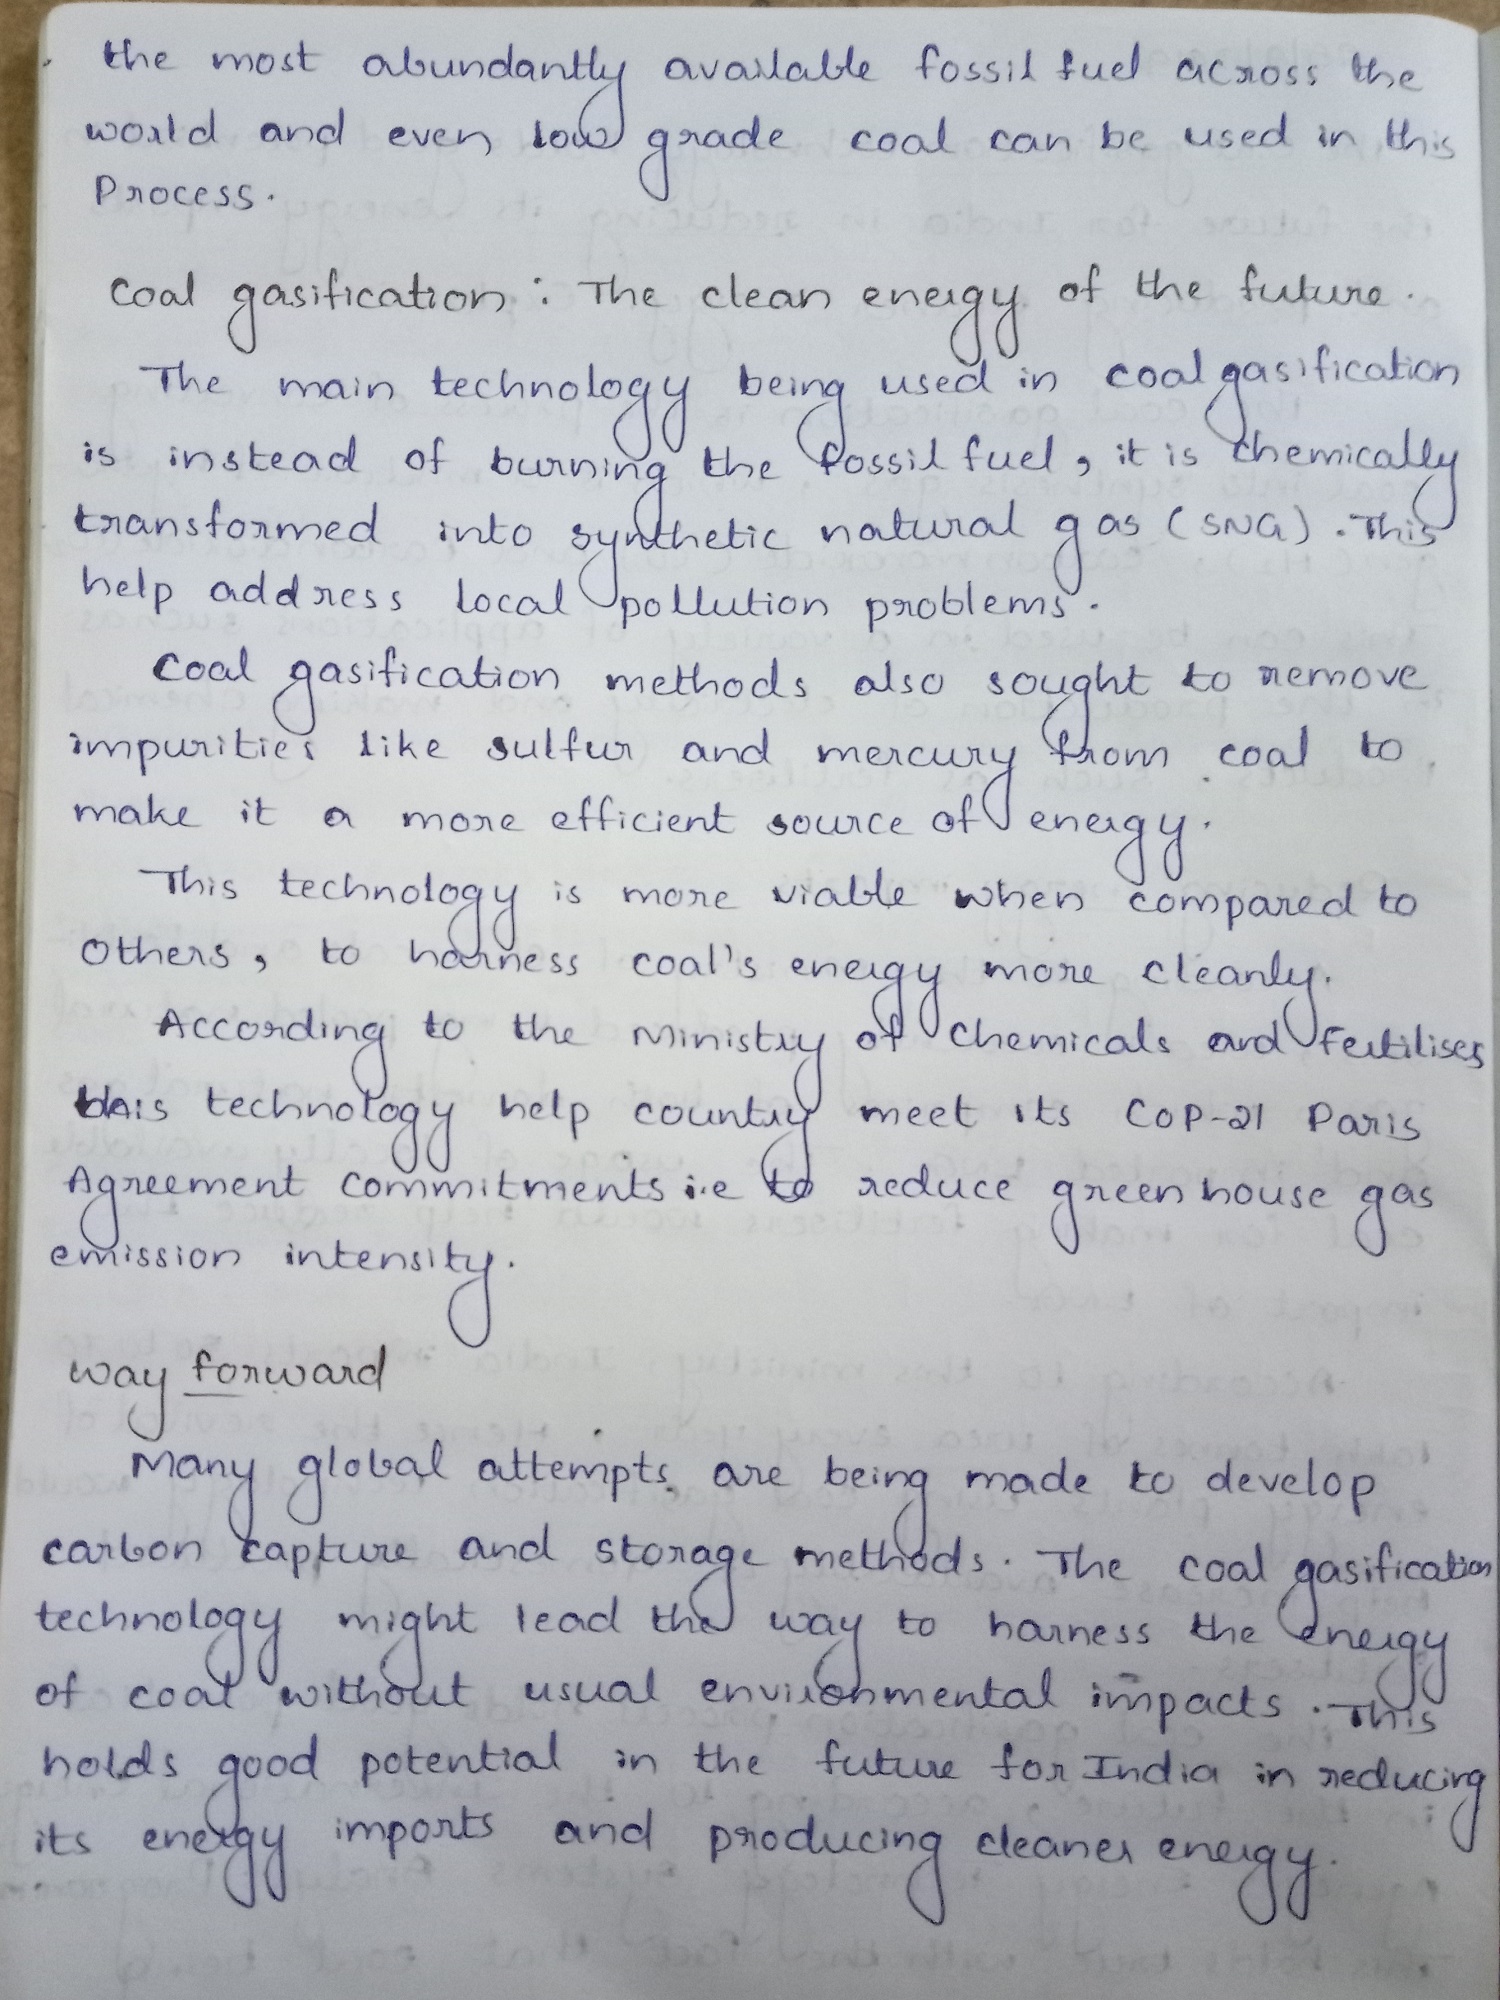 the most abundantly available fossil fuel across the
world and even low grade coal can be used in this
Process.
Coal gasification : The clean energy of the future.
The main technology being used in coal gasification
is instead of burning the fossil fuel, it is chemically
transformed into synthetic natural gas (SNG). This
help address local pollution problems.
Coal gasification methods also sought to remove
impurities like sulfur and mercury from coal to
make it a more efficient source of energy.
This technology is more viable when compared to
Others, to harness coal's energy more cleanly.
According to the Ministry of Chemicals and Fertilises
this technology help country meet its COP-21 Paris
Agreement commitments i.e to reduce greenhouse gas
emission intensity.
way forward
Many global attempts are being made to develop
carbon capture and storage methods. The coal gasification
technology might lead the way to harness the energy
of coal without usual environmental impacts. This
holds good potential in the future for India in reducing
its energy imports and producing cleaner energy.